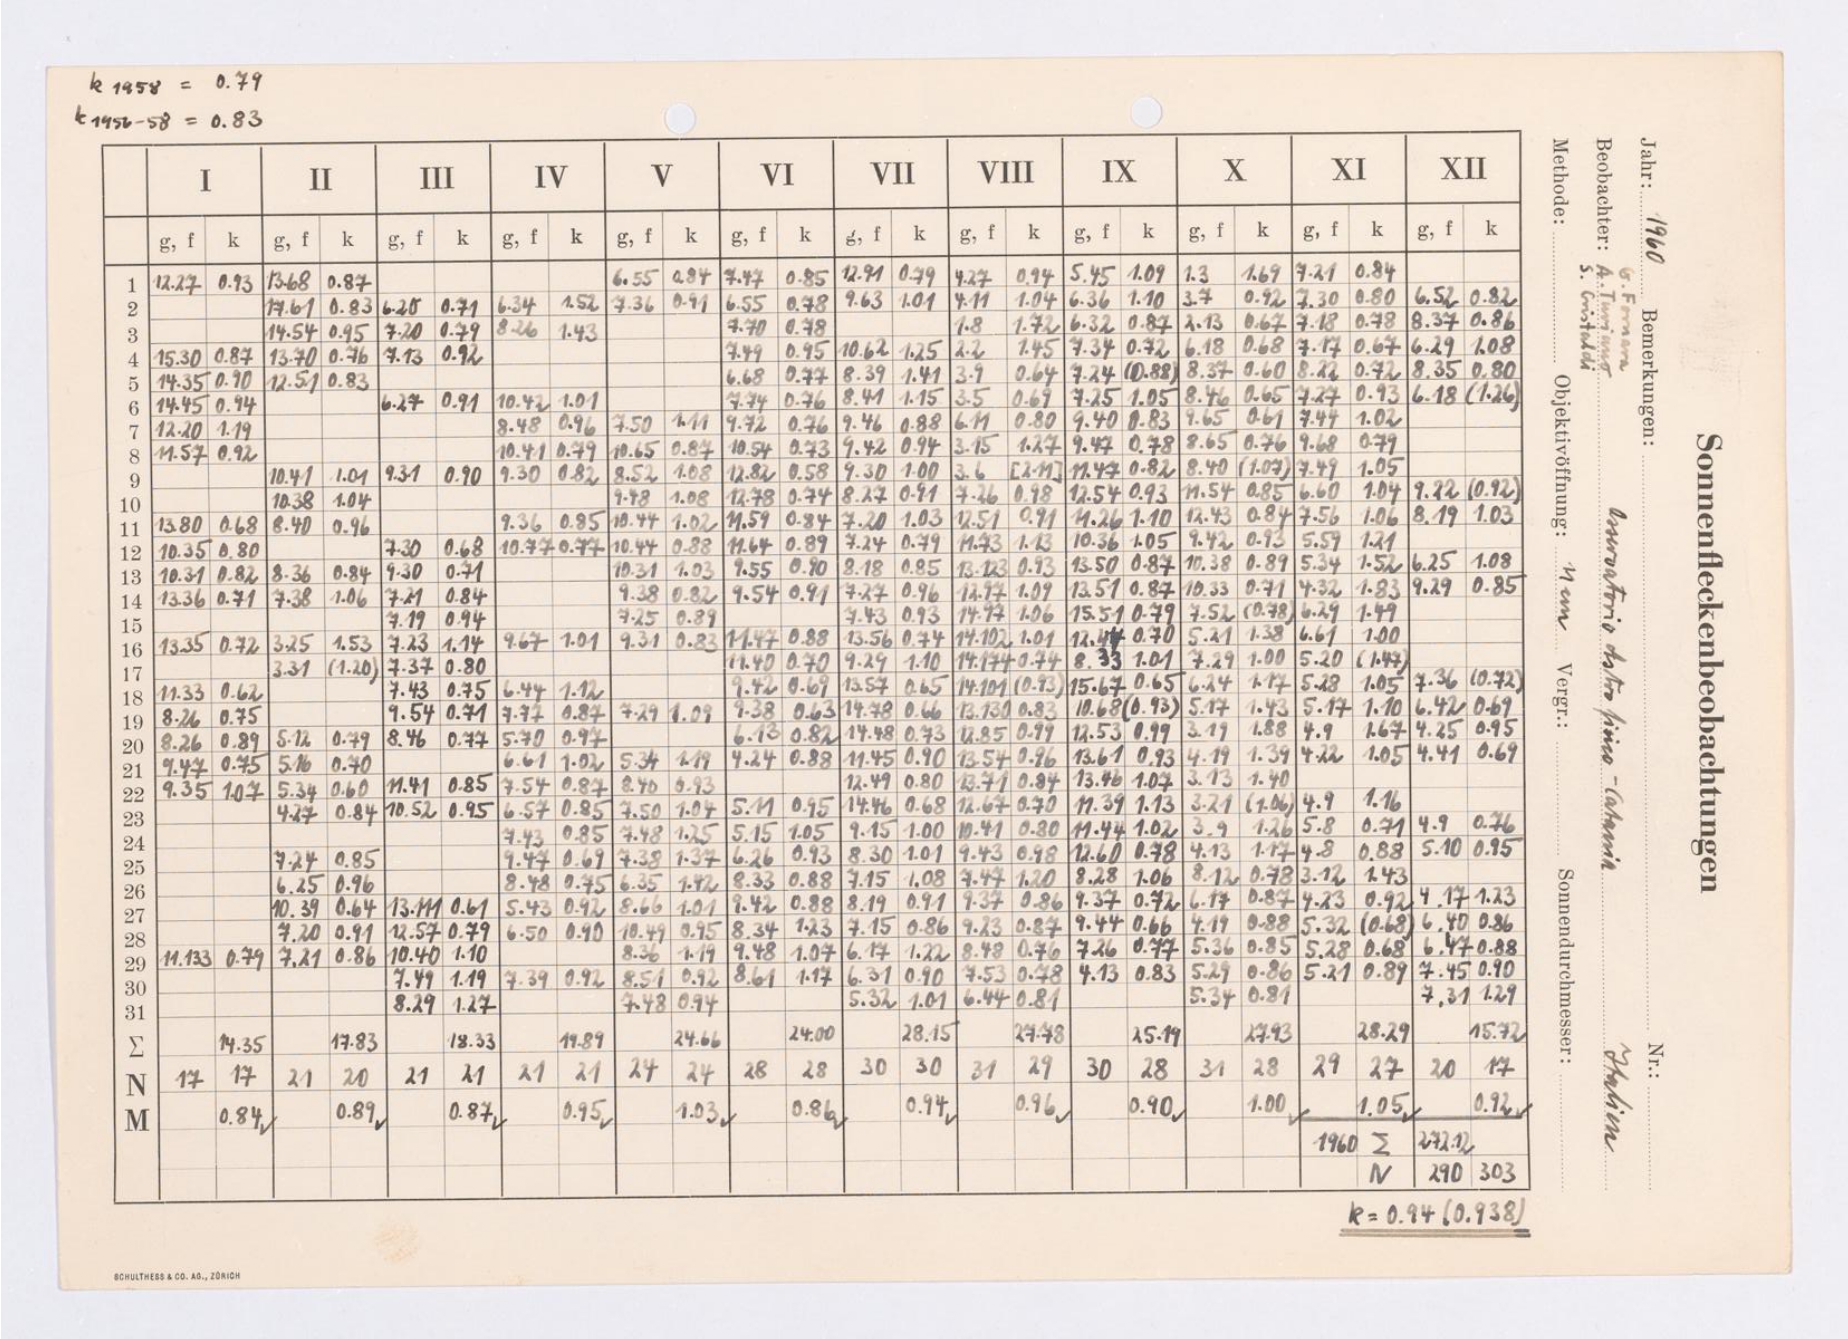 k 1958 = 0.79
k 1956-58 = 0.83
I II III IV V VI VII VIII IX X XI XII
g, f k g, f k g, f k g, f k g, f k g, f k g, f k g, f k g, f k g, f k g, f k g, f k
1 12.27 0.93 13.68 0.87 6.55 0.84 7.47 0.85 12.91 0.79 4.27 0.94 5.45 1.09 1.3 1.69 7.21 0.84
2 17.61 0.83 6.20 0.71 6.34 1.52 7.36 0.91 6.55 0.78 9.63 1.01 4.11 1.04 6.36 1.10 3.7 0.92 7.30 0.80 6.52 0.82
3 14.54 0.95 7.20 0.79 8.26 1.43 7.70 0.78 1.8 1.72 6.32 0.87 2.13 0.67 7.18 0.78 8.37 0.86
4 15.30 0.87 13.70 0.76 7.13 0.92 7.49 0.95 10.62 1.25 2.2 1.45 7.34 0.72 6.18 0.68 7.17 0.67 6.29 1.08
5 14.35 0.90 12.51 0.83 6.68 0.77 8.39 1.41 3.9 0.64 7.24 (0.88) 8.37 0.60 8.22 0.72 8.35 0.80
6 14.45 0.94 6.27 0.91 10.42 1.01 7.74 0.76 8.41 1.15 3.5 0.69 7.25 1.05 8.46 0.65 7.27 0.93 6.18 (1.26)
7 12.20 1.19 8.48 0.96 7.50 1.11 9.72 0.76 9.46 0.88 6.11 0.80 9.40 0.83 9.65 0.61 7.44 1.02
8 11.57 0.92 10.41 0.79 10.65 0.87 10.54 0.73 9.42 0.94 3.15 1.27 9.47 0.78 8.65 0.76 9.68 0.79
9 10.41 1.01 9.31 0.90 9.30 0.82 8.52 1.08 12.82 0.58 9.30 1.00 3.6 [2.11] 11.47 0.82 8.40 (1.07) 7.49 1.05
10 10.38 1.04 9.48 1.08 12.78 0.74 8.27 0.91 7.26 0.98 12.54 0.93 11.54 0.85 6.60 1.04 9.22 (0.92)
11 13.80 0.68 8.40 0.96 9.36 0.85 10.44 1.02 11.59 0.84 7.20 1.03 12.51 0.91 11.26 1.10 12.43 0.84 7.56 1.06 8.19 1.03
12 10.35 0.80 7.30 0.68 10.77 0.77 10.44 0.88 11.64 0.89 7.24 0.79 11.73 1.13 10.36 1.05 9.42 0.93 5.59 1.21
13 10.31 0.82 8.36 0.84 9.30 0.71 10.31 1.03 9.55 0.90 8.18 0.85 13.123 0.93 13.50 0.87 10.38 0.89 5.34 1.52 6.25 1.08
14 13.36 0.71 7.38 1.06 7.21 0.84 9.38 0.82 9.54 0.91 7.27 0.96 12.97 1.09 13.51 0.87 10.33 0.71 4.32 1.83 9.29 0.85
15 7.19 0.94 7.25 0.89 7.43 0.93 14.97 1.06 15.51 0.79 7.52 (0.78) 6.29 1.49
16 13.35 0.72 3.25 1.53 7.23 1.14 9.67 1.01 9.31 0.83 11.47 0.88 13.56 0.74 14.102 1.01 12.44 0.70 5.21 1.38 6.61 1.00
17 3.31 (1.20) 7.37 0.80 11.40 0.70 9.29 1.10 14.174 0.74 8.33 1.01 7.29 1.00 5.20 (1.47)
18 11.33 0.62 7.43 0.75 6.44 1.12 9.42 0.69 13.57 0.65 14.101 (0.93) 15.67 0.65 6.24 1.17 5.28 1.05 7.36 (0.72)
19 8.26 0.75 9.54 0.71 7.77 0.87 7.29 1.09 9.38 0.63 14.78 0.66 13.130 0.83 10.68 (0.93) 5.17 1.43 5.17 1.10 6.42 0.69
20 8.26 0.89 5.12 0.79 8.46 0.77 5.70 0.97 6.13 0.82 14.48 0.73 12.85 0.99 12.53 0.99 3.19 1.88 4.9 1.67 4.25 0.95
21 9.47 0.75 5.16 0.70 6.61 1.02 5.34 1.19 4.24 0.88 11.45 0.90 13.54 0.96 13.61 0.93 4.19 1.39 4.22 1.05 4.41 0.69
22 9.35 1.07 5.34 0.60 11.41 0.85 7.54 0.87 8.40 0.93 12.49 0.80 13.71 0.84 13.46 1.07 3.13 1.40
23 4.27 0.84 10.52 0.95 6.57 0.85 7.50 1.04 5.11 0.95 14.46 0.68 12.67 0.70 11.39 1.13 3.21 (1.06) 4.9 1.16
24 7.43 0.85 7.48 1.25 5.15 1.05 9.15 1.00 10.41 0.80 11.44 1.02 3.9 1.26 5.8 0.71 4.9 0.76
25 7.24 0.85 9.47 0.69 7.38 1.37 6.26 0.93 8.30 1.01 9.43 0.98 12.60 0.78 4.13 1.17 4.8 0.88 5.10 0.95
26 6.25 0.96 8.48 0.75 6.35 1.42 8.33 0.88 7.15 1.08 7.47 1.20 8.28 1.06 8.12 0.78 3.12 1.43
27 10.39 0.64 13.111 0.61 5.43 0.92 8.66 1.01 9.42 0.88 8.19 0.91 9.37 0.86 9.37 0.72 6.17 0.87 4.23 0.92 4.17 1.23
28 7.20 0.91 12.57 0.79 6.50 0.90 10.49 0.95 8.34 1.23 7.15 0.86 9.23 0.87 9.44 0.66 4.19 0.88 5.32 (0.68) 6.40 0.86
29 11.133 0.79 7.21 0.86 10.40 1.10 8.36 1.19 9.48 1.07 6.17 1.22 8.48 0.76 7.26 0.77 5.36 0.85 5.28 0.68 6.47 0.88
30 7.49 1.19 7.39 0.92 8.51 0.92 8.61 1.17 6.31 0.90 7.53 0.78 4.13 0.83 5.29 0.86 5.21 0.89 7.45 0.90
31 8.29 1.27 7.48 0.94 5.32 1.01 6.44 0.81 5.34 0.81 7,31 1.29
Σ 14.35 17.83 18.33 19.89 24.66 24.00 28.15 27.78 25.19 27.93 28.29 15.72
N 17 17 21 20 21 21 21 21 24 24 28 28 30 30 31 29 30 28 31 28 29 27 20 17
M 0.84✓ 0.89✓ 0.87✓ 0.95✓ 1.03✓ 0.86✓ 0.94✓ 0.96✓ 0.90✓ 1.00✓ 1.05✓ 0.92✓
1960 Σ 272.12
N 290 303
k = 0.94 (0.938)
SCHULTHESS & CO. AG., ZÜRICH
Sonnenfleckenbeobachtungen
Jahr: 1960 Bemerkungen: Nr.:
G. Fornera
Beobachter: A. Turiano Osservatorio Astrofisico - Catania Italien
S. Cristaldi
Methode: Objektivöffnung: 11 cm Vergr.: Sonnendurchmesser: